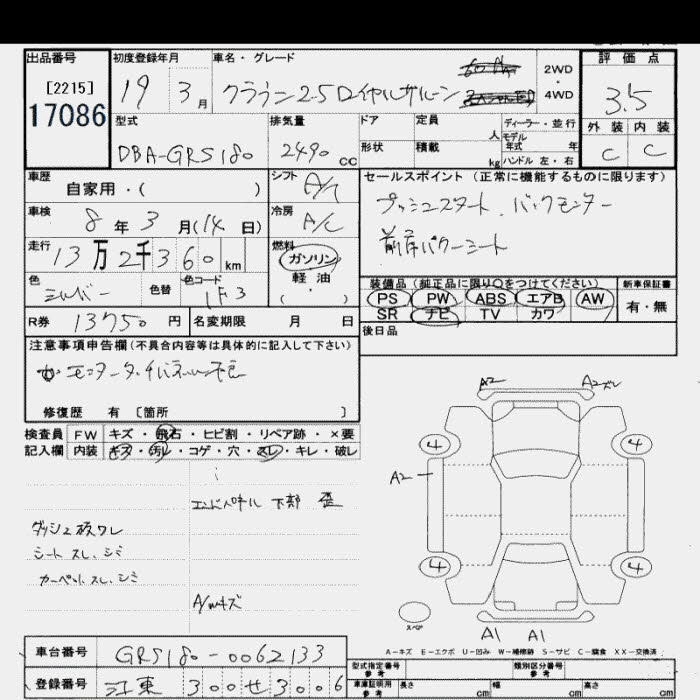 出品番号 初度登録年月 車名・グレード 評価点
[2215]
17086
19 3月 クラウン2.5ロイヤルサルーン 2WD・4WD 3.5
型式 排気量 ドア 定員 人 ディーラー・並行 外装 内装
DBA-GRS180 2490cc 形状 積載 kg モデル年式 年 ハンドル 左・右 C C
車歴 自家用・( ) シフト A/T セールスポイント(正常に機能するものに限ります)
車検 8年3月(14日) 冷房 A/C プッシュスタート、バックモニター
前席パワーシート
走行 13万2千360km 燃料 ガソリン 軽油・( )
色 シルバー 色替 色コード 1F3 装備品(純正品に限り○をつけてください) 新車保証書
PS PW ABS エアB AW 有・無
R券 13750円 名変期限 月 日 SR ナビ TV カワ
後日品
注意事項申告欄(不具合内容等は具体的に記入して下さい)
修復歴 有 [箇所 ]
検査員 FW キズ・飛石・ヒビ割・リペア跡・×要
記入欄 内装 キズ・汚レ・コゲ・穴・スレ・キレ・破レ
エンドパネル下部 歪
シートスレ、シミ
カーペットスレ、シミ
A/Wキズ
A2 A2ズレ
4 4
A2
4 4
スペア
A1 A1
A=キズ E=エクボ U=凹み W=補修跡 S=サビ C=腐食 XX=交換済
車台番号 GRS180-0062133 型式指定番号 参考 類別区分番号 参考
登録番号 江東 300せ3006 車庫証明用 参考 長さ cm 幅 cm 高さ cm